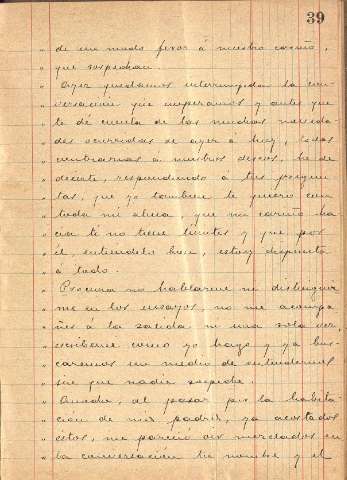 39
" de un modo feroz á nuestro cariño,
" que sospechan.
" Ayer quedamos interrumpidos la con-
" versación que empezamos y antes que
" te dé cuenta de las muchas noveda-
" des ocurridas de ayer á hoy, todas
" contrarias á nuestros deseos, he de
" decirte, respondiendo á tus pregun-
" tas, que yo también te quiero con
" toda mi alma, que mi cariño ha-
" cia ti no tiene límites y que por
" él, entiendelo bien, estoy dispuesta
" á todo.
" Procura no hablarme ni distinguir
" me en los ensayos, no me acompa-
" ñes á la salida ni una sola vez,
" escribeme como yo hago y ya bus-
" caremos un medio de entendernos
" sin que nadie sospeche.
" Anoche, al pasar por la habita-
" ción de mis padres, ya acostados
" estos, me pareció oir mezclados en
" la conversación tu nombre y el